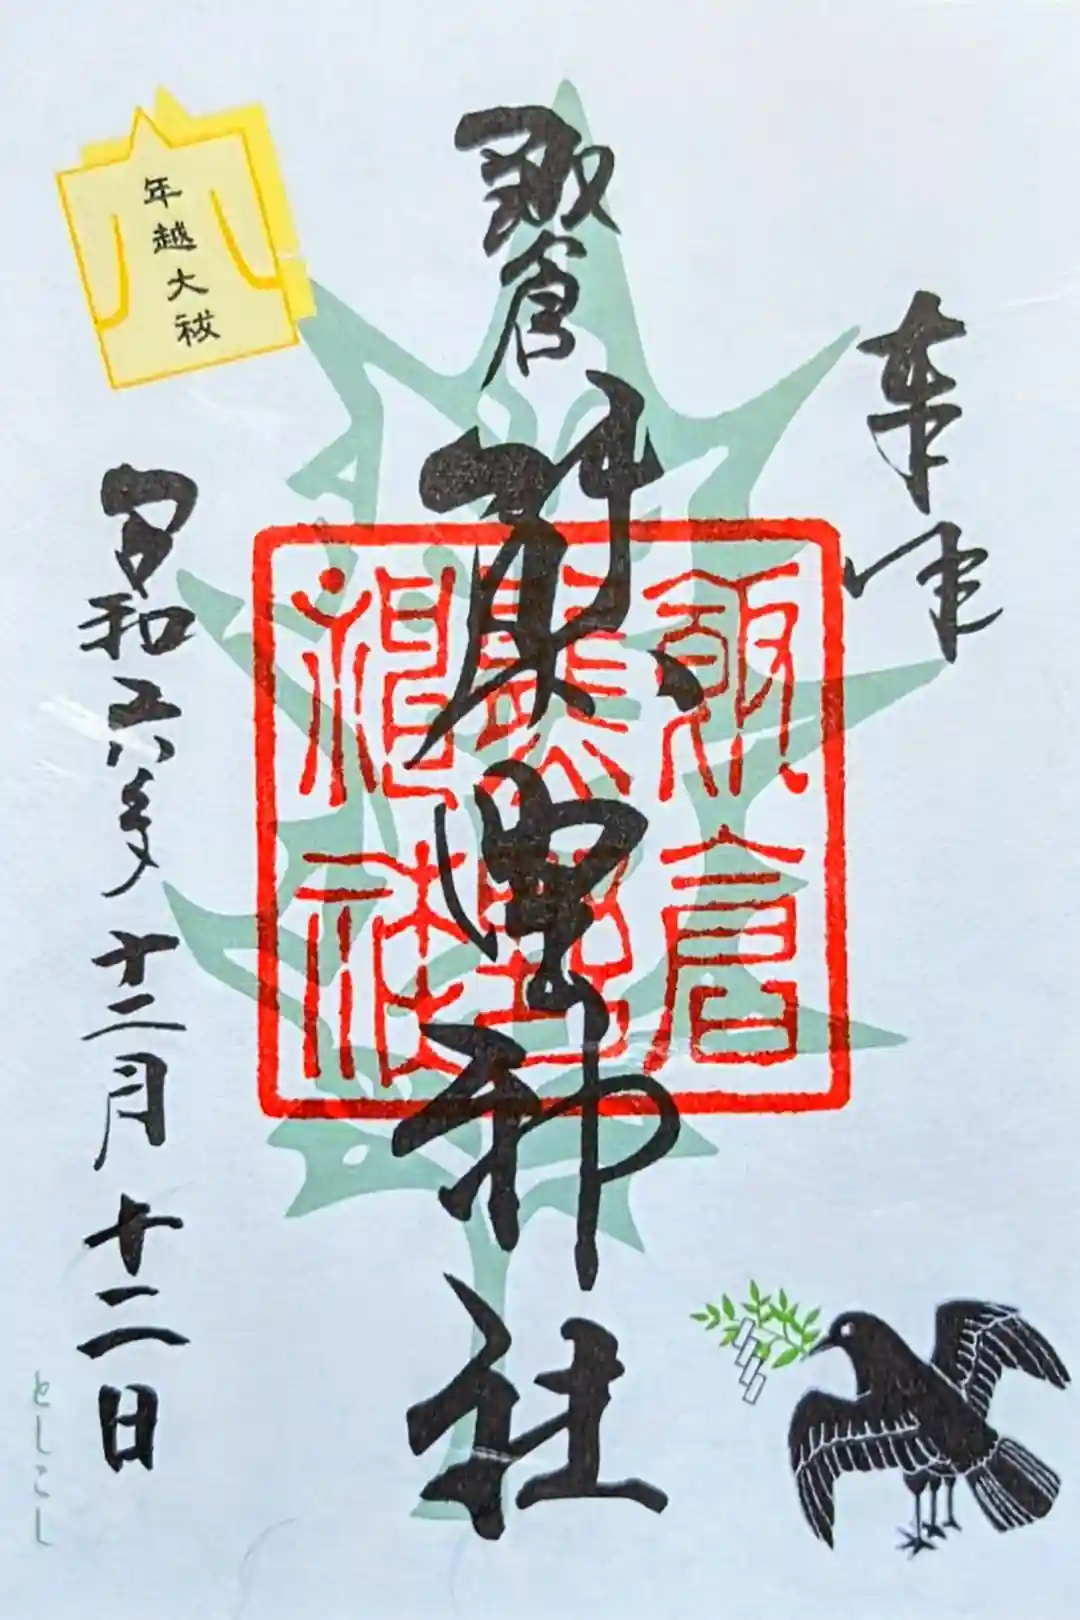 奉拝
飯倉
熊野神社
飯倉
熊野
神社
年越大祓
令和六年十二月十二日
としこし